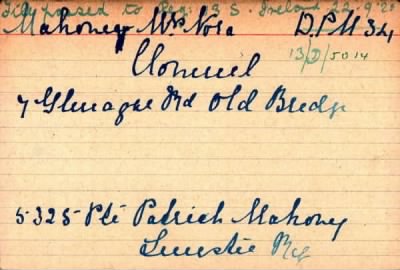 File passed to Reg: 13 S Ireland 22-9-20
Mahoney Mrs Nora D.P.M 34
13/D/5014
Clonmel
7 Glenagae Rd Old Bridge
5325 Pte Patrick Mahoney
Leinster Rg